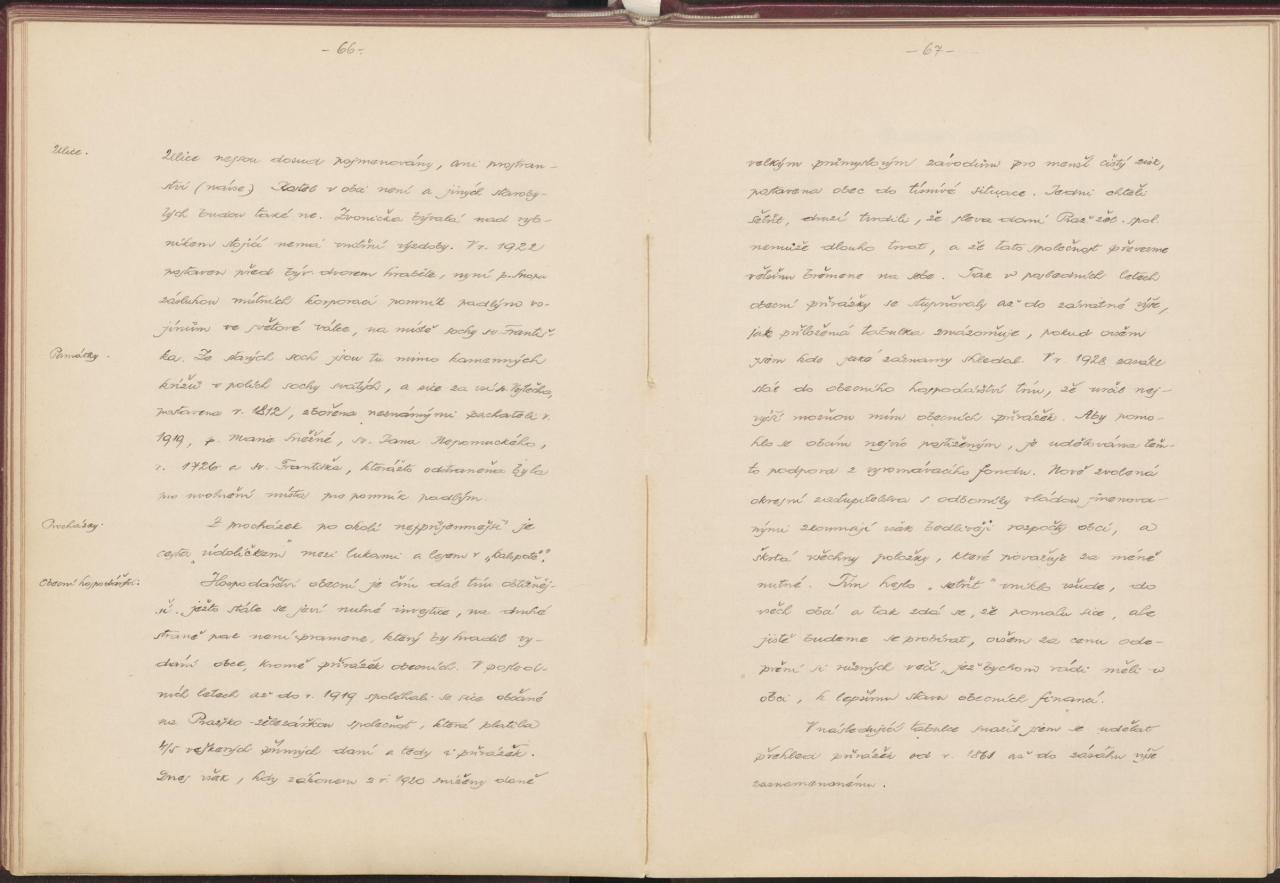 - 66 -
Ulice.
Ulice nejsou dosud pojmenovány, ani prostran-
ství (náves.) Kostel v obci není a jiných staroby-
lých budov také ne. Zvonička bývalá nad ryb-
níkem stojící nemá vnitřní výzdoby. V r. 1922
postaven před býv. dvorem hraběte, nyní p.
zásluhou místních korporací pomník padlým vo-
jínům ve světové válce, na místě sochy sv. Františ-
Památky.
ka. Ze starých soch jsou tu mimo kamenných
křížů v polích sochy svatých, a sice za vsí sv. Vojtěcha,
postavena r. 1812, zbořena neznámými pachateli r.
1919, p. Marie Sněžné, sv. Jana Nepomuckého,
r. 1726 a sv. Františka, kterážto odstraněna byla
pro uvolnění místa pro pomník padlým.
Procházky.
Z procházek po okolí nejpříjemnější je
cesta „údolíčkem" mezi lukami a lesem v
Obecní hospodářství:
Hospodářství obecní je čím dál tím obtížněj-
ší, ježto stále se jeví nutné investice, na druhé
straně pak není pramene, který by hradil vy-
dání obce, kromě přirážek obecních. V posled-
ních letech až do r. 1919 spoléhali se sice občané
na Pražsko-železářskou společnost, která platila
4/5 veškerých přímých daní a tedy i přirážek.
Dnes však, kdy zákonem z r. 1920 sníženy daně
- 67 -
velkým průmyslovým závodům pro menší čistý zisk,
postavena obec do tísnivé situace. Jedni chtěli
šetřit, druzí tvrdili, že sleva daní Praž. žel. spol.
nemůže dlouho trvat, a že tato společnost převezme
většinu břemene na sebe. Tak v posledních letech
obecní přirážky se stupňovaly až do závratné výše,
jak přiložená tabulka znázorňuje, pokud ovšem
jsem kde jaké záznamy shledal. V r. 1928 zasáhl
stát do obecního hospodářství tím, že určil nej-
vyšší možnou míru obecních přirážek. Aby pomo-
hlo se obcím nejvíc postiženým, je udělována těm-
to podpora z vyrovnávacího fondu. Nově zvolená
okresní zastupitelstva s odborníky vládou jmenova-
nými zkoumají však bedlivěji rozpočty obcí, a
škrtá všechny položky, které považuje za méně
nutné. Tím heslo „šetřit" vniklo všude, do
všech obcí a tak zdá se, že pomalu sice, ale
jistě budeme se probírat, ovšem za cenu ode-
pření si různých věcí, jež bychom rádi měli v
obci, k lepšímu stavu obecních financí.
V následující tabulce snažil jsem se udělat
přehled přirážek od r. 1861 až do zásahu výše
zaznamenanému.